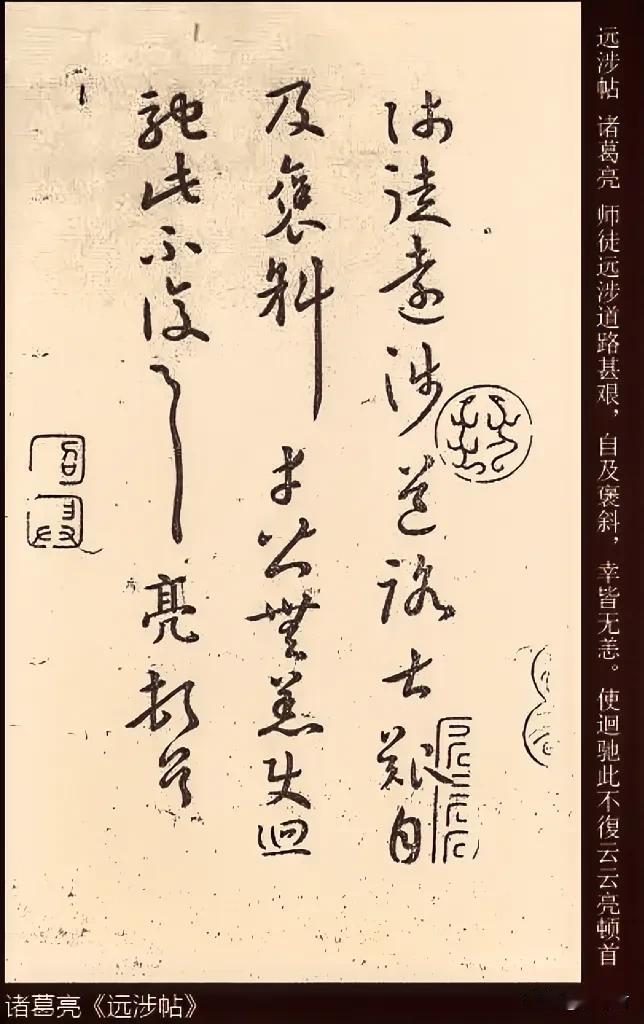 师徒遠涉道路甚艱自
及褒斜幸皆無恙使迴
馳此不復云云亮頓首
远涉帖 诸葛亮 师徒远涉道路甚艰，自及褒斜，幸皆无恙。使迴驰此不復云云亮顿首
诸葛亮《远涉帖》